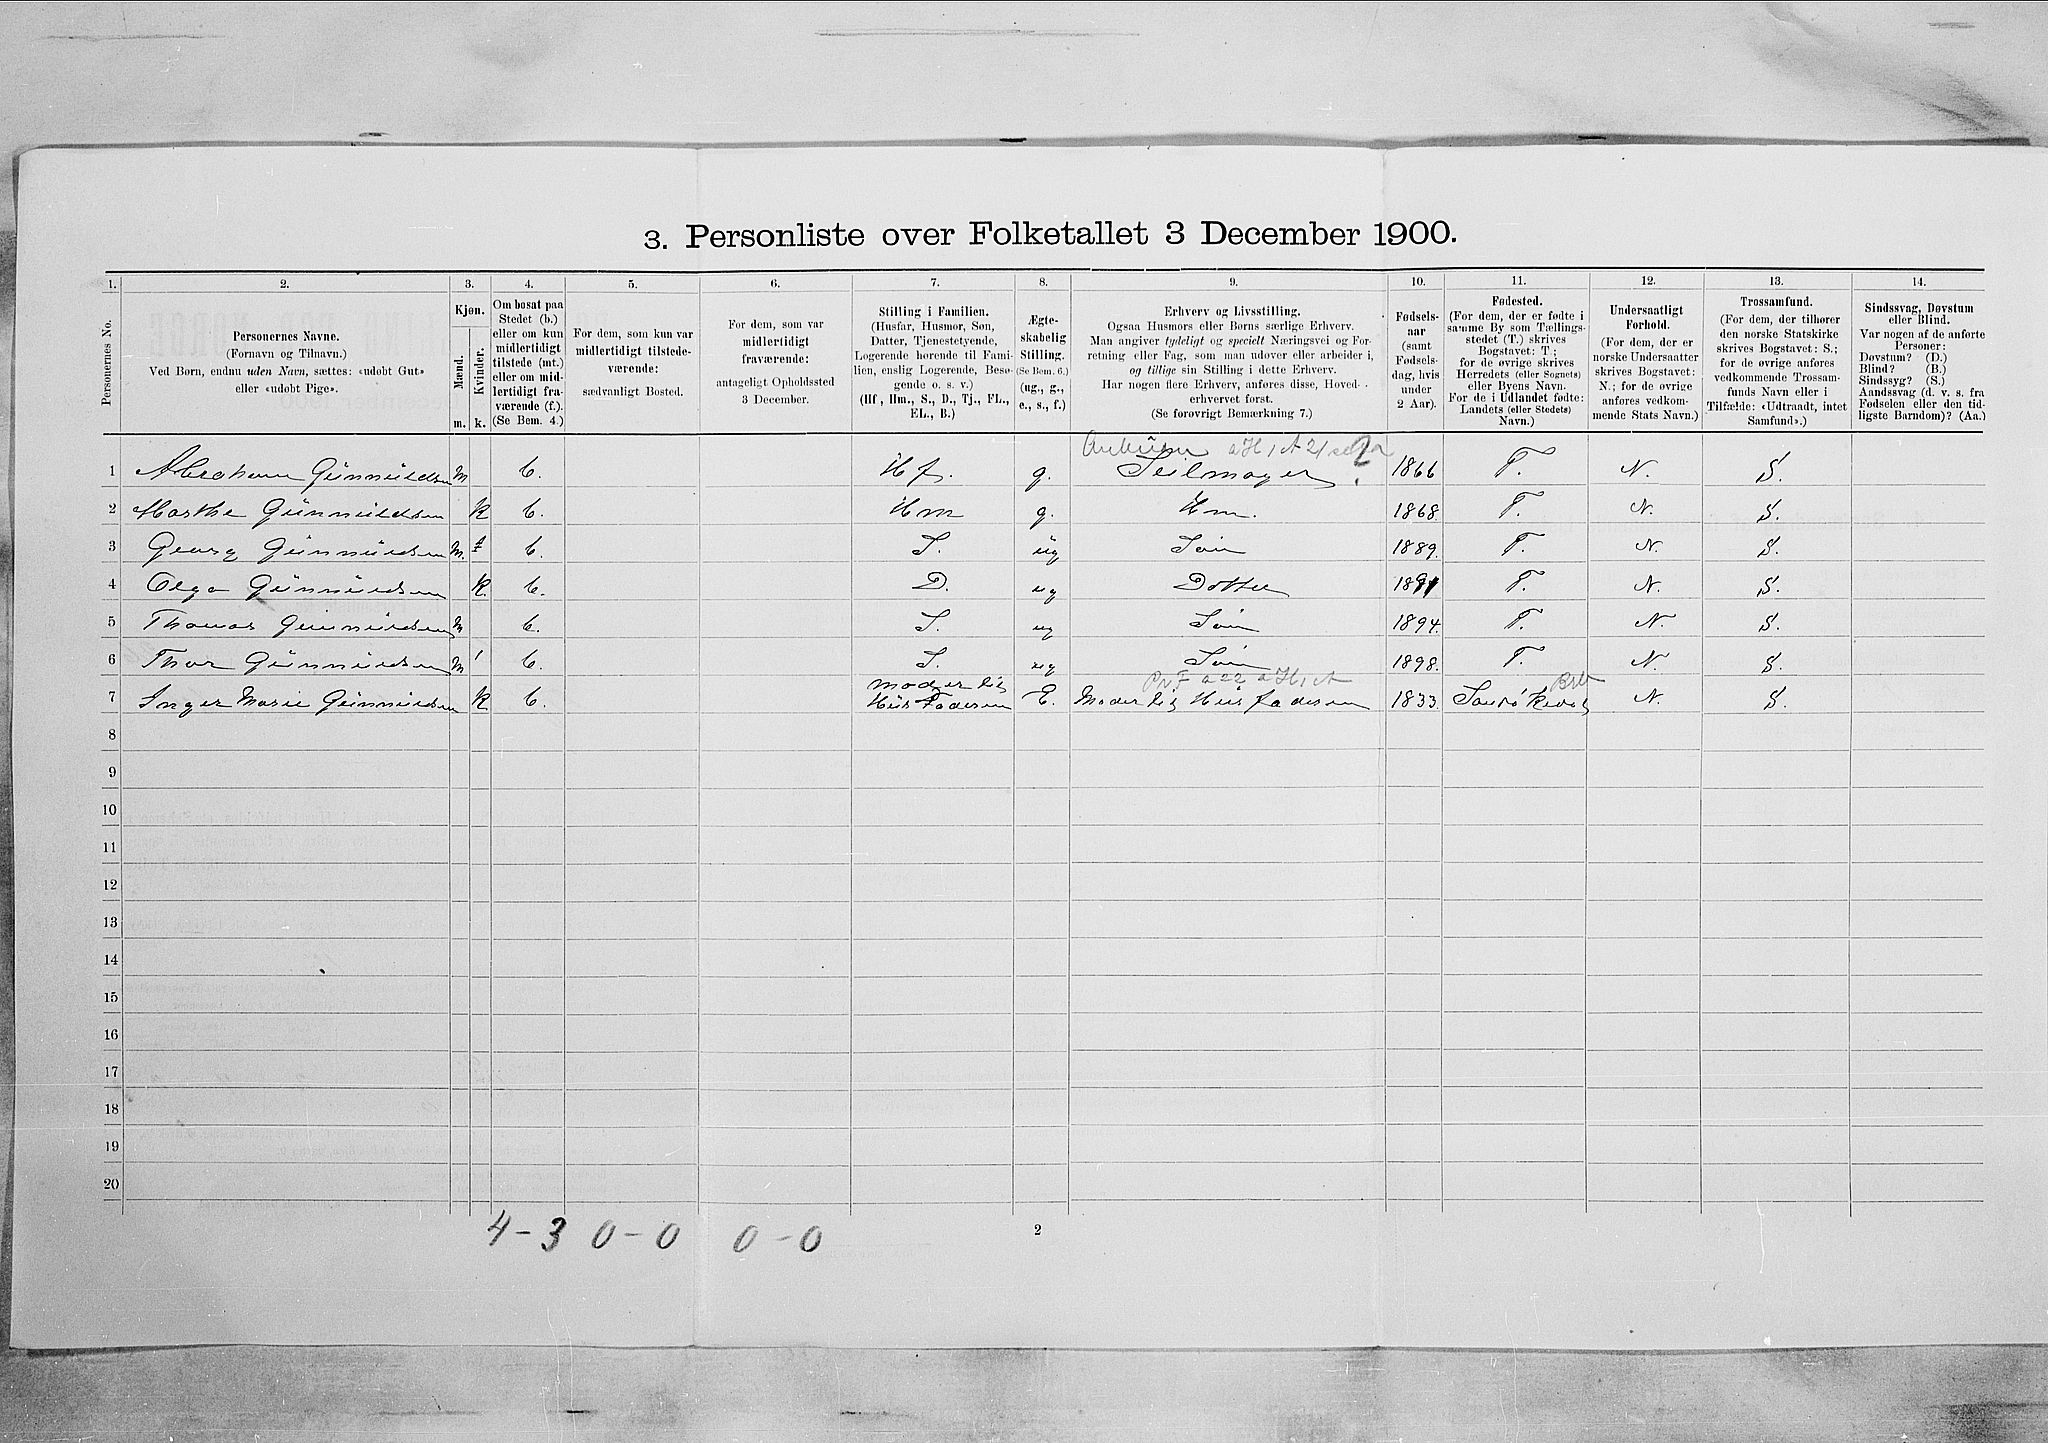 3. Personliste over Folketallet 3 December 1900.
1. 2. 3. 4. 5. 6. 7. 8. 9. 10. 11. 12. 13. 14.
Personernes No.
Personernes Navne.
(Fornavn og Tilnavn.)
Ved Børn, endnu uden Navn, sættes: «udøbt Gut»
eller «udøbt Pige».
Kjøn.
Mænd.
Kvinder.
m. k.
Om bosat paa
Stedet (b.)
eller om kun
midlertidigt
tilstede (mt.)
eller om mid-
lertidigt fra-
værende (f.).
(Se Bem. 4.)
For dem, som kun var
midlertidigt tilstede-
værende:
sædvanligt Bosted.
For dem, som var
midlertidigt
fraværende:
antageligt Opholdssted
3 December.
Stilling i Familien.
(Husfar, Husmor, Søn,
Datter, Tjenestetyende,
Logerende hørende til Fami-
lien, enslig Logerende, Besø-
gende o. s. v.)
(Hf., Hm., S., D., Tj., FL.,
EL., B.)
Ægte-
skabelig
Stilling.
(Se Bem. 6.)
(ug., g.,
e., s., f.)
Erhverv og Livsstilling.
Ogsaa Husmors eller Børns særlige Erhverv.
Man angiver tydeligt og specielt Næringsvei og For-
retning eller Fag, som man udøver eller arbeider i,
og tillige sin Stilling i dette Erhverv.
Har nogen flere Erhverv, anføres disse, Hoved-
erhvervet først.
(Se forøvrigt Bemærkning 7.)
Fødsels-
aar
(samt
Fødsels-
dag, hvis
under
2 Aar).
Fødested.
(For dem, der er fødte i
samme By som Tællings-
stedet (T.) skrives
Bogstavet: T.;
for de øvrige skrives
Herredets (eller Sognets)
eller Byens Navn.
For de i Udlandet fødte:
Landets (eller Stedets)
Navn.)
Undersaatligt
Forhold.
(For dem, der er
norske Undersaatter
skrives Bogstavet:
N.; for de øvrige
anføres vedkom-
mende Stats Navn.)
Trossamfund.
(For dem, der tilhører
den norske Statskirke
skrives Bogstavet: S.;
for de øvrige anføres
vedkommende Trossam-
funds Navn eller i
Tilfælde: «Udtraadt, intet
Samfund».)
Sindssvag, Døvstum
eller Blind.
Var nogen af de anførte
Personer:
Døvstum? (D.)
Blind? (B.)
Sindssyg? (S.)
Aandssvag (d. v. s. fra
Fødselen eller den tid-
ligste Barndom)? (Aa.)
1 Abraham Günnuldsen M b. Hf. g. Seilmager ? 1866 T. N. S.
2 Marthe Günnuldsen K b. Hm g. Hm. 1868. T. N. S.
3 Georg Günnuldsen M. b. S. ug Søn 1889. T. N. S.
4 Olga Günnuldsen K. b. D. ug Dotter 1891 T. N. S.
5 Thomas Günnuldsen M b. S. ug Søn 1894. T. N. S.
6 Thor Günnuldsen M b. S. ug Søn 1898. T. N. S.
moderlig
7 Inger Marie Günnuldsen K b. Hus Fadesen E. Moderlig Hus fadesen 1833. N. S.
8
9
10
11
12
13
14
15
16
17
18
19
20
4-3 0-0 0-0
2